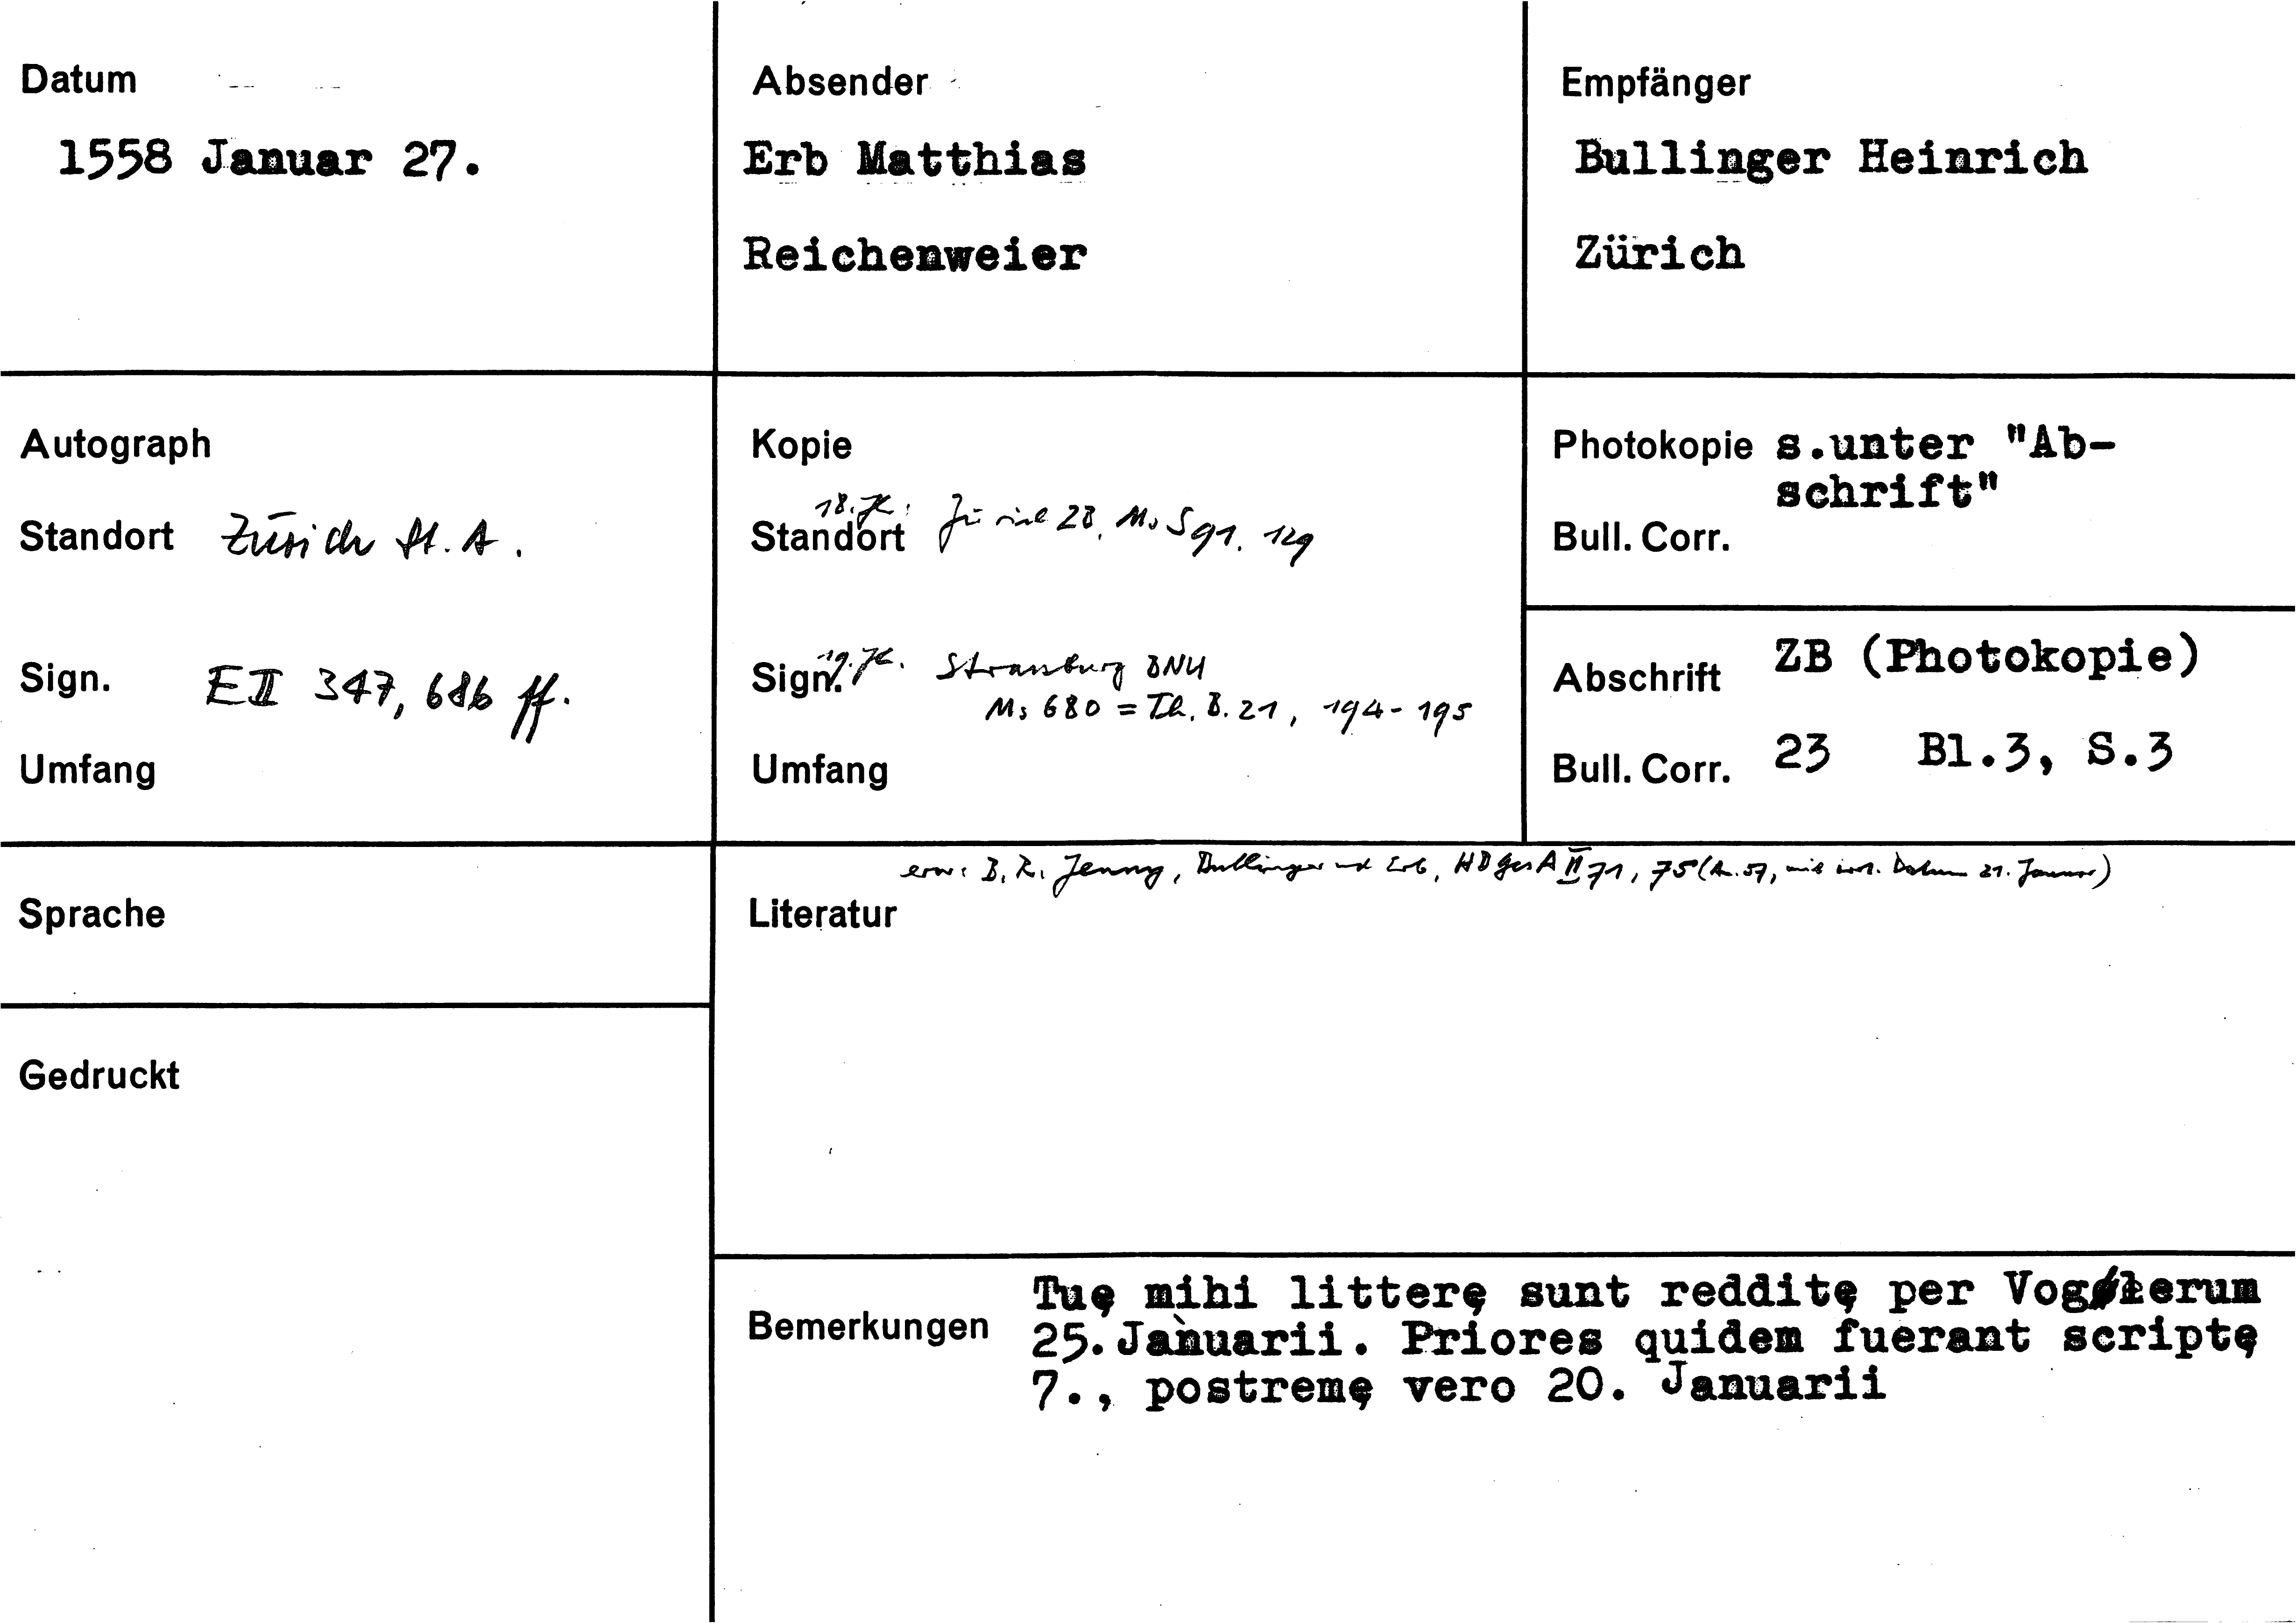 Datum
1558 Januar 27.
Absender
Erb Matthias
Reichenweier
Empfänger
Bullinger Heinrich
Zürich
Autograph
Standort Zürich St. A.
Sign. E II 347, 686 ff.
Umfang
Kopie
18. Jh.: Zürich ZB, Ms S 91, 129
Standort
19. Jh. Strassburg BNU
Sign. Ms 680 = Th. B. 21, 194-195
Umfang
Photokopie s.unter "Ab-
schrift"
Bull. Corr.
Abschrift ZB (Photokopie)
Bull. Corr. 23 Bl.3, S.3
Sprache
erw: B. R. Jenny, Bullinger und Erb, HBGesA II 71, 75 (A. 57, mit irrt. Datum 21. Januar)
Literatur
Gedruckt
Bemerkungen
Tuę mihi litterę sunt redditę per Voglerum
25.Januarii. Priores quidem fuerant scriptę
7., postremę vero 20. Januarii